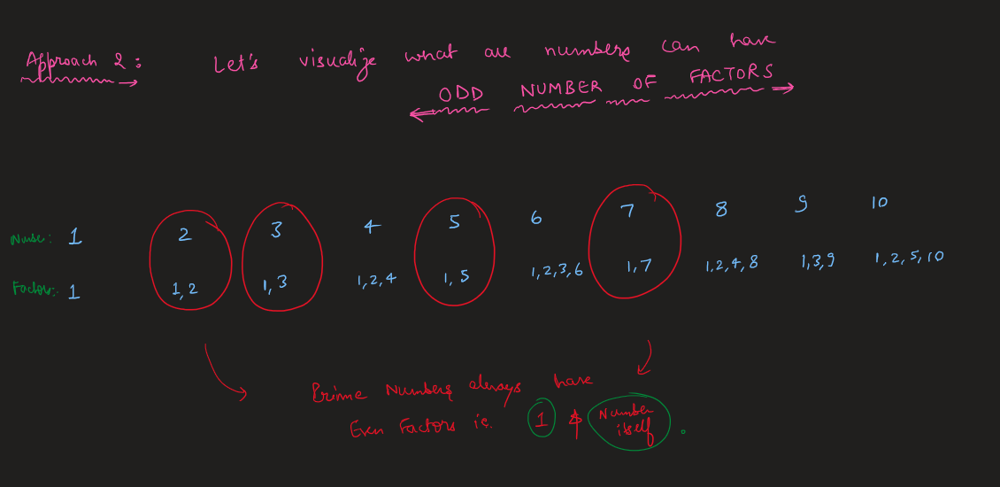 Approach 2: Let's visualize what are numbers can have
ODD NUMBER OF FACTORS
Number: 1 2 3 4 5 6 7 8 9 10
Factors: 1 1,2 1,3 1,2,4 1,5 1,2,3,6 1,7 1,2,4,8 1,3,9 1,2,5,10
Prime Numbers always have
Even Factors ie. 1 & Number
itself.